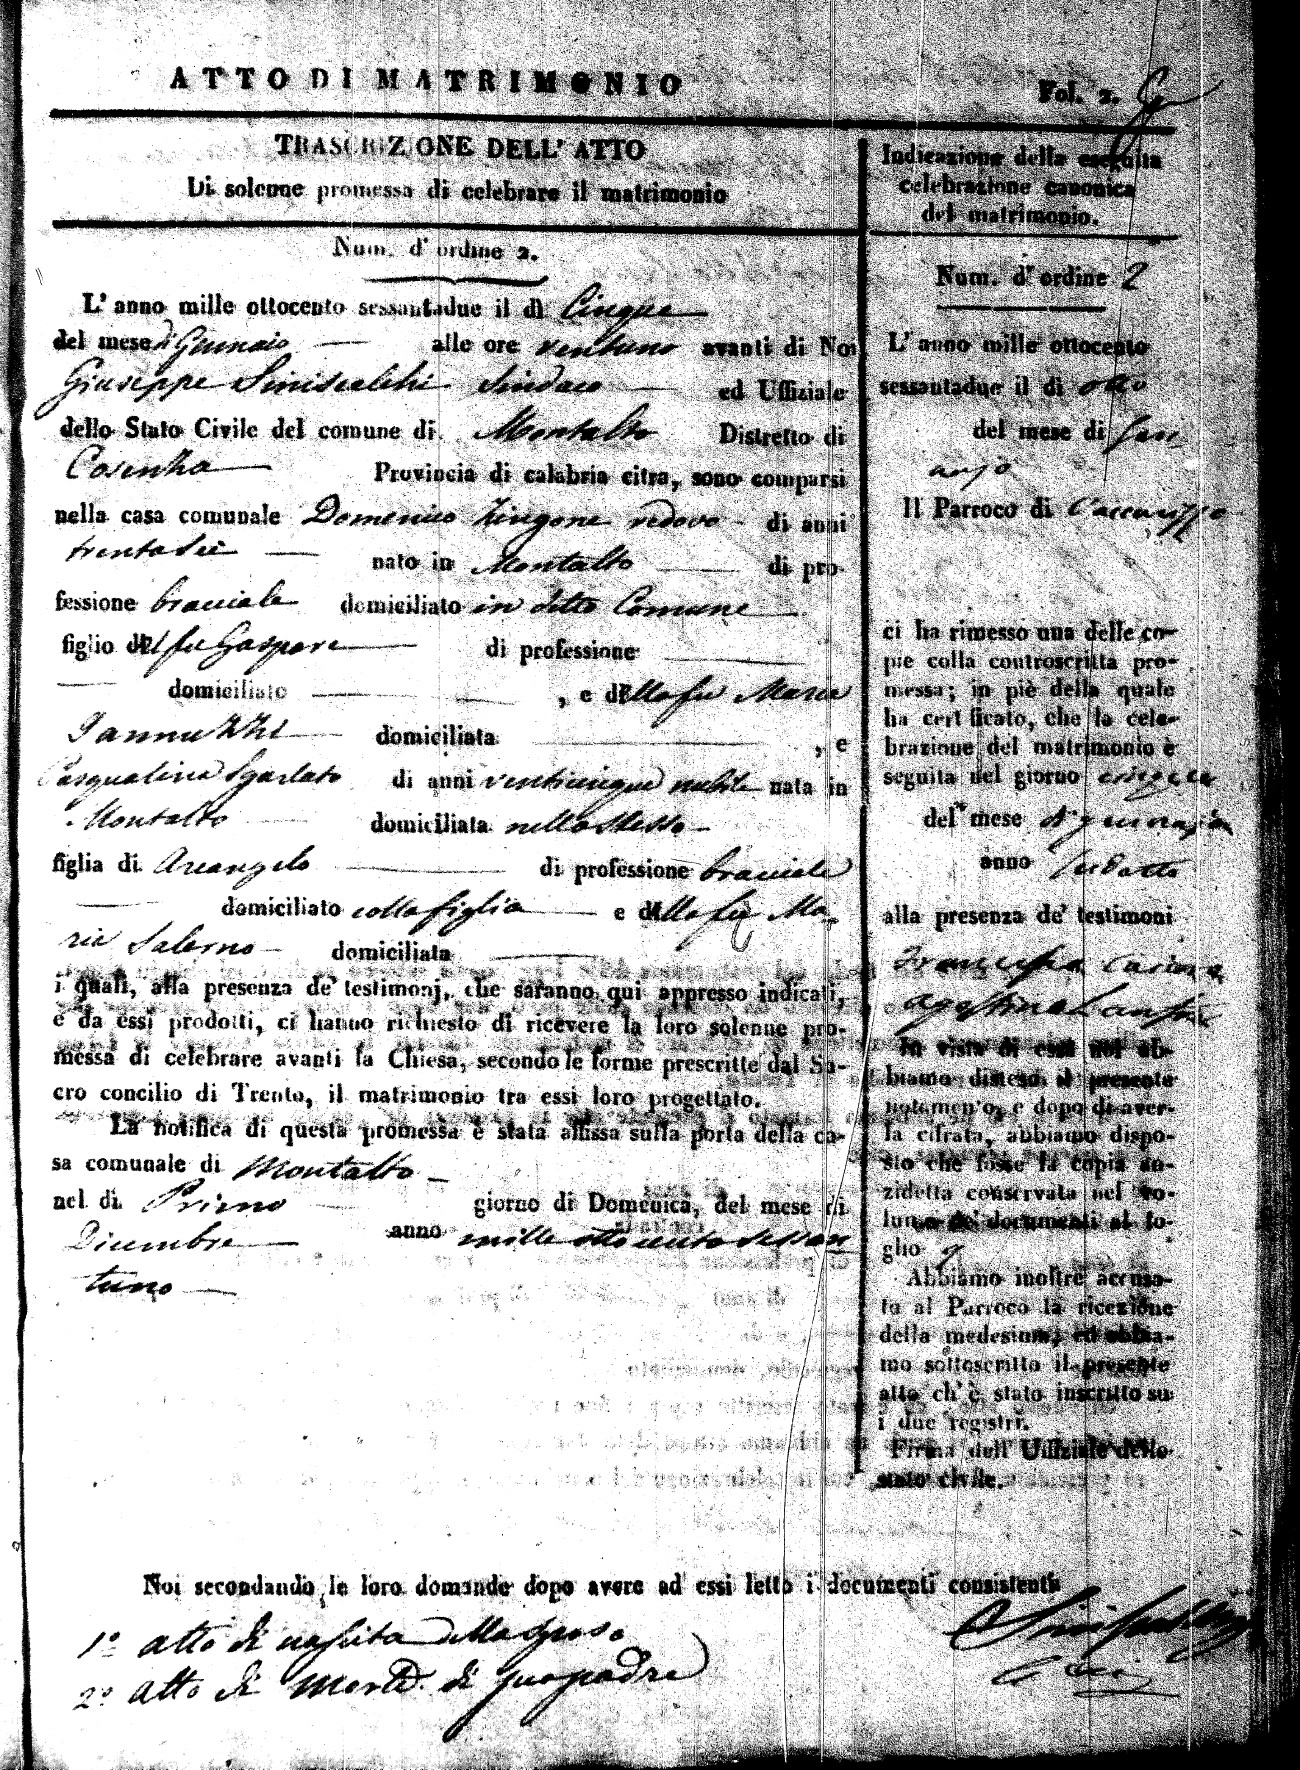 ATTO DI MATRIMONIO
Fol. 2.
TRASCRIZIONE DELL' ATTO
Di solenne promessa di celebrare il matrimonio
Num. d' ordine 2.
L' anno mille ottocento sessantadue il dì Cinque
del mese di Gennaio alle ore ventuno avanti di Noi
Giuseppe Siniscalchi Sindaco ed Uffiziale
dello Stato Civile del comune di Montalto Distretto di
Cosenza Provincia di calabria citra, sono comparsi
nella casa comunale Domenico Zingone vedovo di anni
trentasei nato in Montalto di pro-
fessione bracciale domiciliato in detto Comune
figlio del fu Gaspare di professione
domiciliato , e della fu Maria
Iannuzzi domiciliata , e
Pasqualina Sgarlato di anni venticinque nubile nata in
Montalto domiciliata nello stesso
figlia di Arcangelo di professione bracciale
domiciliato colla figlia e della fu Ma-
ria Salerno domiciliata
i quali, alla presenza de' testimonj, che saranno qui appresso indicati,
e da essi prodotti, ci hanno richiesto di ricevere la loro solenne pro-
messa di celebrare avanti la Chiesa, secondo le forme prescritte dal Sa-
cro concilio di Trento, il matrimonio tra essi loro progettato.
La notifica di questa promessa è stata affissa sulla porta della ca-
sa comunale di Montalto
nel dì Primo giorno di Domenica, del mese di
Dicembre anno mille ottocento sessan
tuno
Noi secondando le loro domande dopo avere ad essi letto i documenti consistenti
1º atto di nascita dello sposo
2º atto di morte di suo padre
Indicazione della eseguita
celebrazione canonica
del matrimonio.
Num. d' ordine 2
L' anno mille ottocento
sessantadue il dì otto
del mese di Gen
najo
Il Parroco di
ci ha rimesso una delle co-
pie colla controscritta pro-
messa; in piè della quale
ha certificato, che la cele-
brazione del matrimonio è
seguita nel giorno cinque
del mese di gennajo
anno sudetto
alla presenza de' testimoni
Francesco
Agostino
In vista di essa noi ab-
biamo disteso il presente
notamento, e dopo di aver-
la cifrata, abbiamo dispo-
sto che fosse la copia an-
zidetta conservata nel vo-
lume de' documenti al fo-
glio 9
Abbiamo inoltre accusa-
to al Parroco la ricezione
della medesima, ed abbia-
mo sottoscritto il presente
atto ch' è stato inscritto su
i due registri.
Firma dell' Uffiziale dello
stato civile.
Siniscalchi